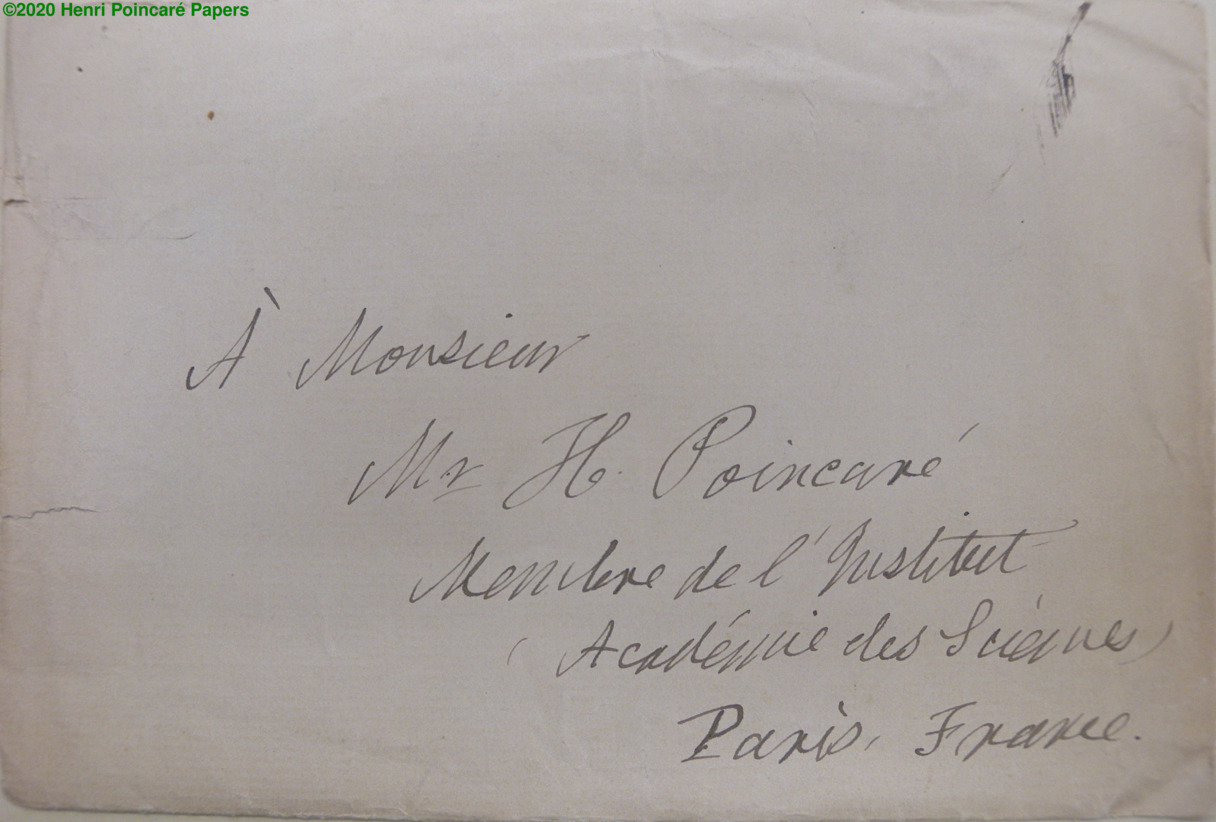 ©2020 Henri Poincaré Papers
À Monsieur
Mr H. Poincaré
Membre de l'Institut
(Académie des Sciénces)
Paris, France.